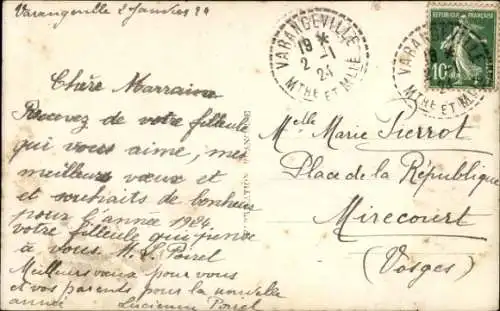 Varangeville 2 Janvier 24
Chère Marraine
Recevez de votre filleule
qui vous aime, mes
meilleurs vœux et
et souhaits de bonheur
pour l'année 1924
votre filleule qui pense
à vous. M. L. Poirel
Meilleurs vœux pour vous
et vos parents pour la nouvelle
année Lucienne Poirel
VARANGEVILLE
19 *
2 -1
24
MTHE ET MLLE
VARANGEVILLE
MTHE ET MLLE
REPUBLIQUE FRANÇAISE
10c
Mlle Marie Pierrot
Place de la République
Mirecourt
(Vosges)